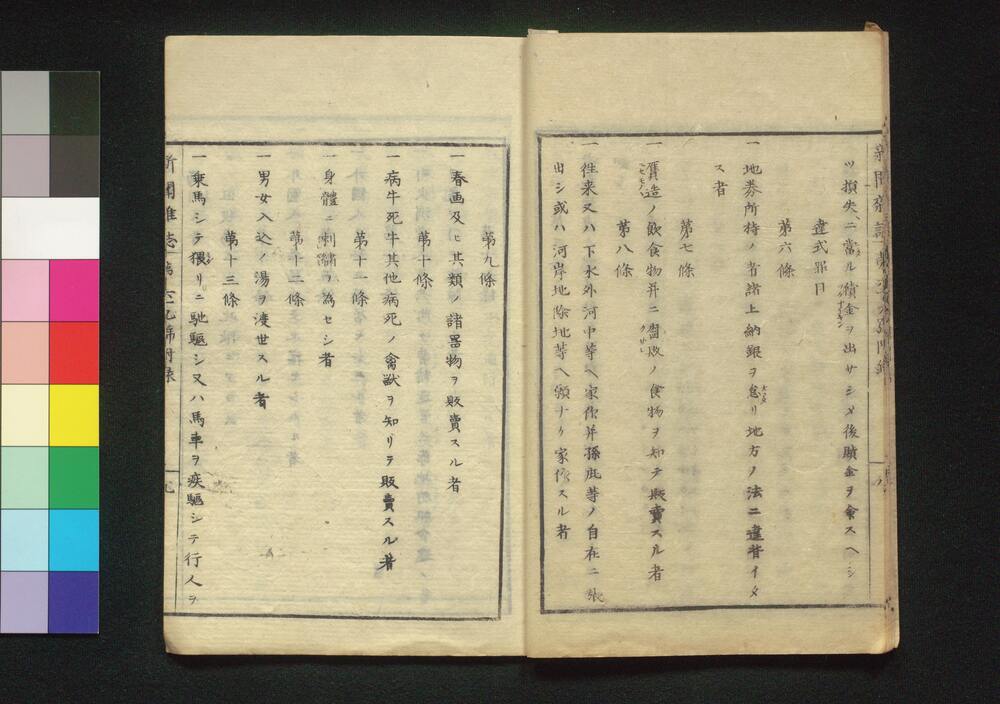 ツ損失ニ當ル償金ヲ出サシメ後贖金ヲ命スヘシ
違式罪目
第六條
一地券所持ノ者諸上納銀ヲ怠リ地方ノ法ニ違背イタ
ス者
第七條
一贋造ノ飲食物并ニ腐敗ノ食物ヲ知テ販賣スル者
第八條
一往来又ハ下水外河中等ヘ家作并孫庇等ノ自在ニ張
出シ或ハ河岸地除地等ヘ願ナク家作スル者
第九條
一春画及ヒ其類ノ諸器物ヲ販賣スル者
第十條
一病牛死牛其他病死ノ禽獣ヲ知リテ販賣スル者
第十一條
一身體ニ刺繍ヲ為セシ者
第十二條
一男女入込ノ湯ヲ渡世スル者
第十三條
一乗馬シテ猥リニ馳驅シ又ハ馬車ヲ疾驅シテ行人ヲ
新聞雑志